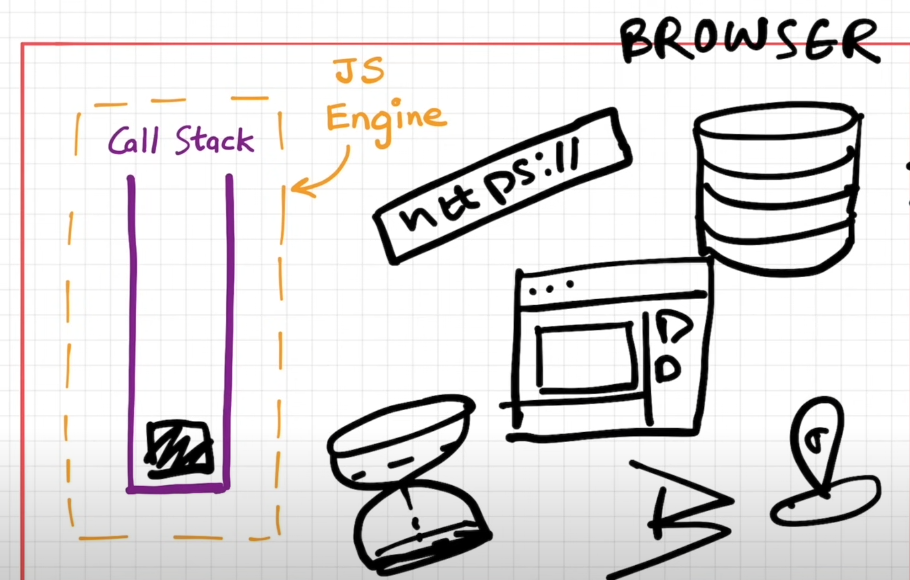 BROWSER
JS
Engine
Call Stack
https://